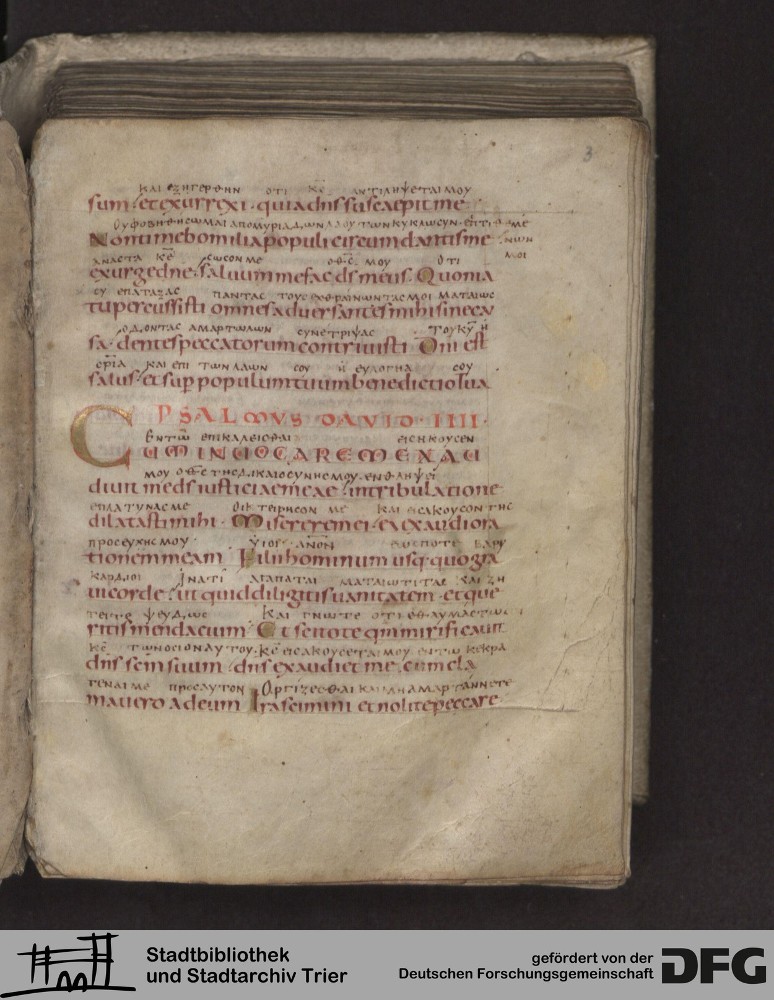 3
ΚΑΙ ΕΞΗΓΕΡΘΗΝ ΟΤΙ Κ̅Ε̅ ΑΝΤΙΛΗΨΕΤΑΙ ΜΟΥ
sum · et exurrexi · quia dns suscaepit me
ΟΥ ΦΟΒΗΘΗCΩΜΑΙ ΑΠΟ ΜΥΡΙΑΔΩΝ ΛΑΟΥ ΤΩΝ ΚΥΚΛΩ CΥΝ
Non timebo milia populi circumdantis me
ΑΝΑCΤΑ Κ̅Ε̅ CΩCΟΝ ΜΕ Ο Θ̅C̅ ΜΟΥ ΟΤΙ ΜΟΙ
exurge dne · saluum me fac ds meus · Quonia
CΥ ΕΠΑΤΑΞΑC ΠΑΝΤΑC ΤΟΥC ΜΟΙ ΜΑΤΑΙΩC
tu percussisti omnes aduersantes mihi sine cau
ΟΔΟΝΤΑC ΑΜΑΡΤΩΛΩΝ CΥΝΕΤΡΙΨΑC ΤΟΥ Κ̅Υ̅ Η
sa · dentes peccatorum contriuisti Dni est
ΚΑΙ ΕΠΙ ΤΩΝ ΛΑΩΝ CΟΥ Η ΕΥΛΟΓΗΑ CΟΥ
salus · et sup populum tuum benedictio tua
PSALMVS DAVID · IIII ·
ΕΝ ΤΩ ΕΠΙΚΑΛΕΙCΘΑΙ ΕΙCΗΚΟΥCΕΝ
CUM INUOCAREM EXAU
ΜΟΥ Ο Θ̅C̅ ΤΗC ΔΙΚΑΙΟCΥΝΗC ΜΟΥ · ΕΝ ΘΛΗΨΕΙ
diuit me ds iusticiae meae · in tribulatione
ΕΠΛΑΤΥΝΑC ΜΕ ΟΙΚΤΕΙΡΗCΟΝ ΜΕ ΚΑΙ ΕΙCΑΚΟΥCΟΝ ΤΗC
dilatasti mihi · Miserere mei · et exaudi ora
ΠΡΟCΕΥΧΗC ΜΟΥ ΥΙΟΙ ΑΝ̅Ο̅Ν ΕΩC ΠΟΤΕ ΒΑΡΥ
tionem meam Filii hominum usq · quo gra
ΚΑΡΔΙΟΙ ΙΝΑΤΙ ΑΓΑΠΑΤΑΙ ΜΑΤΑΙΩΤΙΤΑC ΚΑΙ ΖΗ
ui corde · ut quid diligitis uanitatem · et que
ΨΕΥΔΩC ΚΑΙ ΓΝΩΤΕ ΟΤΙ ΕΘΑΥΜΑCΤΩC
ritis mendacium Et scitote qm mirificauit
Κ̅Ε̅ ΤΩΝ ΟCΙΟΝ ΑΥΤΟΥ · Κ̅Ε̅ ΕΙCΑΚΟΥCΕΤΑΙ ΜΟΥ ΕΝ ΤΩ ΚΕΚΡΑ
dns scm suum · dns exaudiet me cum cla
ΓΕΝΑΙ ΜΕ ΠΡΟC ΑΥΤΟΝ ΟΡΓΙΖΕCΘΑΙ ΚΑΙ ΜΗ ΑΜΑΡΤΑΝΝΕΤΕ
mauero ad eum Irascimini et nolite peccare
Stadtbibliothek
und Stadtarchiv Trier
gefördert von der
Deutschen Forschungsgemeinschaft
DFG